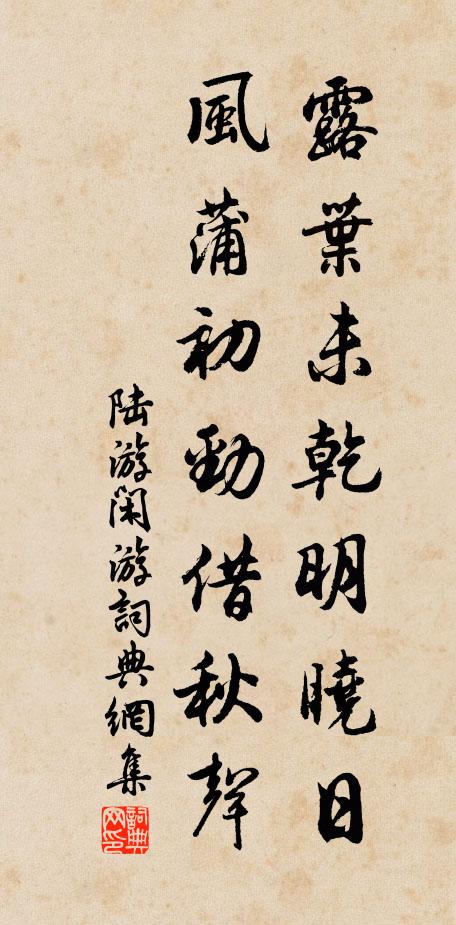 露葉未乾明曉日
風蒲初勁借秋聲
陆游閑游詞典網集
詞典网印